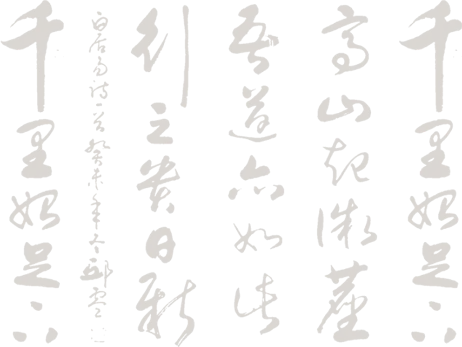 千里始足下
高山起微塵
吾道亦如此
行之貴日新
白居易詩一首癸未年冬
千里始足下